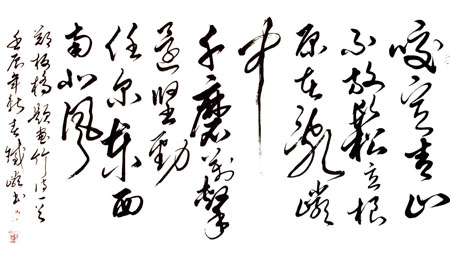 咬定青山
不放鬆立根
原在亂
中
千磨萬擊
還堅勁
任尔東西
南北風
鄭板橋題畫竹詩一首
壬辰年新春書